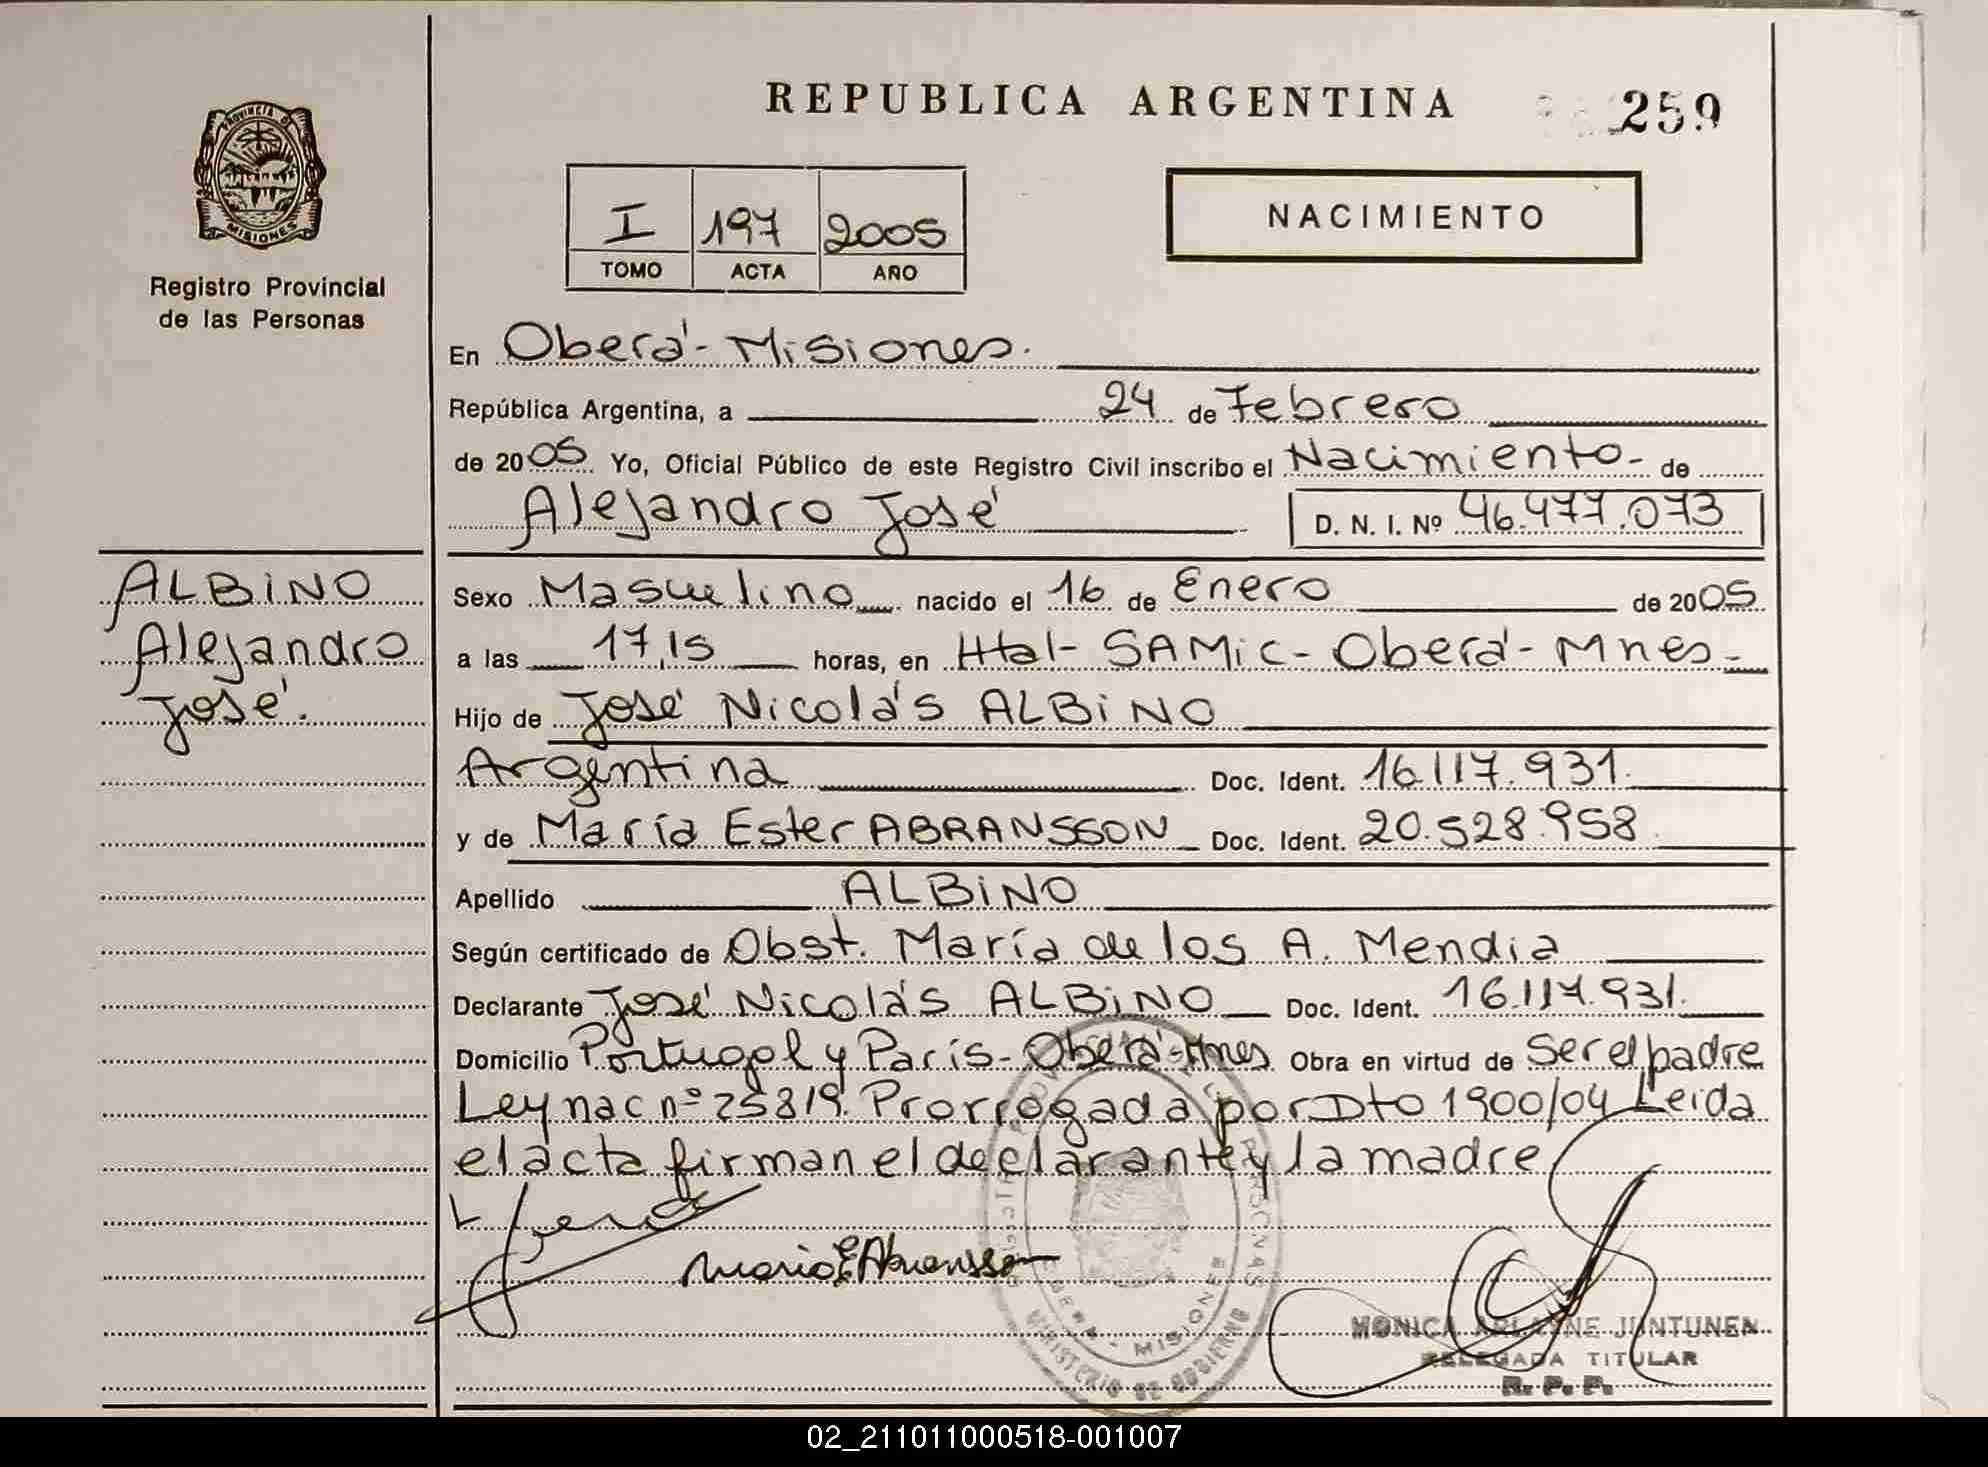 REPUBLICA ARGENTINA
259
PROVINCIA D
MISIONES
Registro Provincial
de las Personas
I 197 2005
TOMO ACTA AÑO
NACIMIENTO
En Oberá - Misiones.
República Argentina, a 24 de Febrero
de 2005 Yo, Oficial Público de este Registro Civil inscribo el Nacimiento - de
Alejandro José D. N. I. Nº 46.477.073
ALBINO
Alejandro
José.
Sexo Masculino nacido el 16 de Enero de 2005
a las 17,15 horas, en Htal - SAMic - Oberá - Mnes -
Hijo de José Nicolás ALBINO
Argentina Doc. Ident. 16.117.931.
y de María Ester ABRANSSON Doc. Ident. 20.528.958
Apellido ALBINO
Según certificado de Obst. María de los A. Mendia
Declarante José Nicolás ALBINO Doc. Ident. 16.117.931.
Domicilio Portugal y París - Oberá - Mnes Obra en virtud de Ser el padre
Ley nac nº 25819. Prorrogada por Dto 1900/04 Leida
el acta firman el declarante y la madre
Maria E Abransson
MISIONES
MINISTERIO DE GOBIERNO
MONICA ARLAYNE JUNTUNEN
DELEGADA TITULAR
R. P. P.
02_211011000518-001007